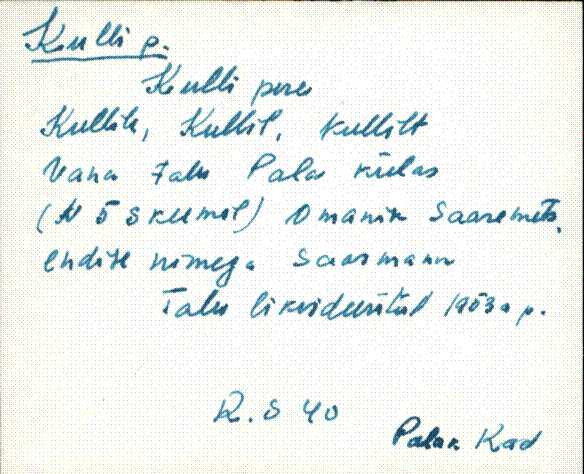 Kulli p.
Kulli pere
Kullile, Kullil, Kullilt
Vana talu Pala külas
(N Õ S Omanik Saaremets,
endise nimega Saarmann
Talu likvideeritud 1953 a p.
R. S 40
Pala Kad